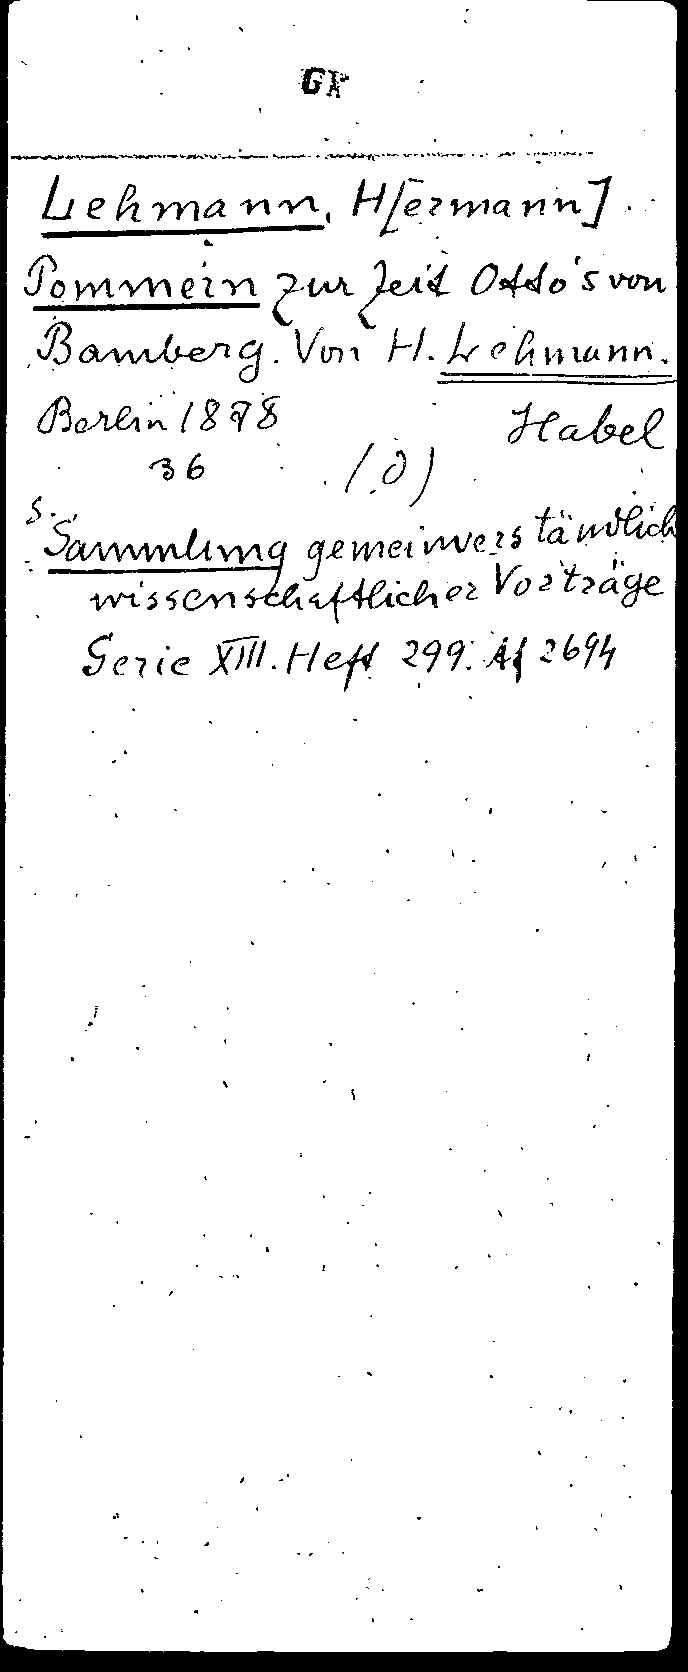 GK
Lehmann, H[ermann]
Pommern zur Zeit Otto's von
Bamberg. Von H. Lehmann.
Berlin 1878 Habel
36 (8)
s.
Sammlung gemeinverständlich
wissenschaftlicher Vorträge
Serie XIII. Heft 299. Af 2694